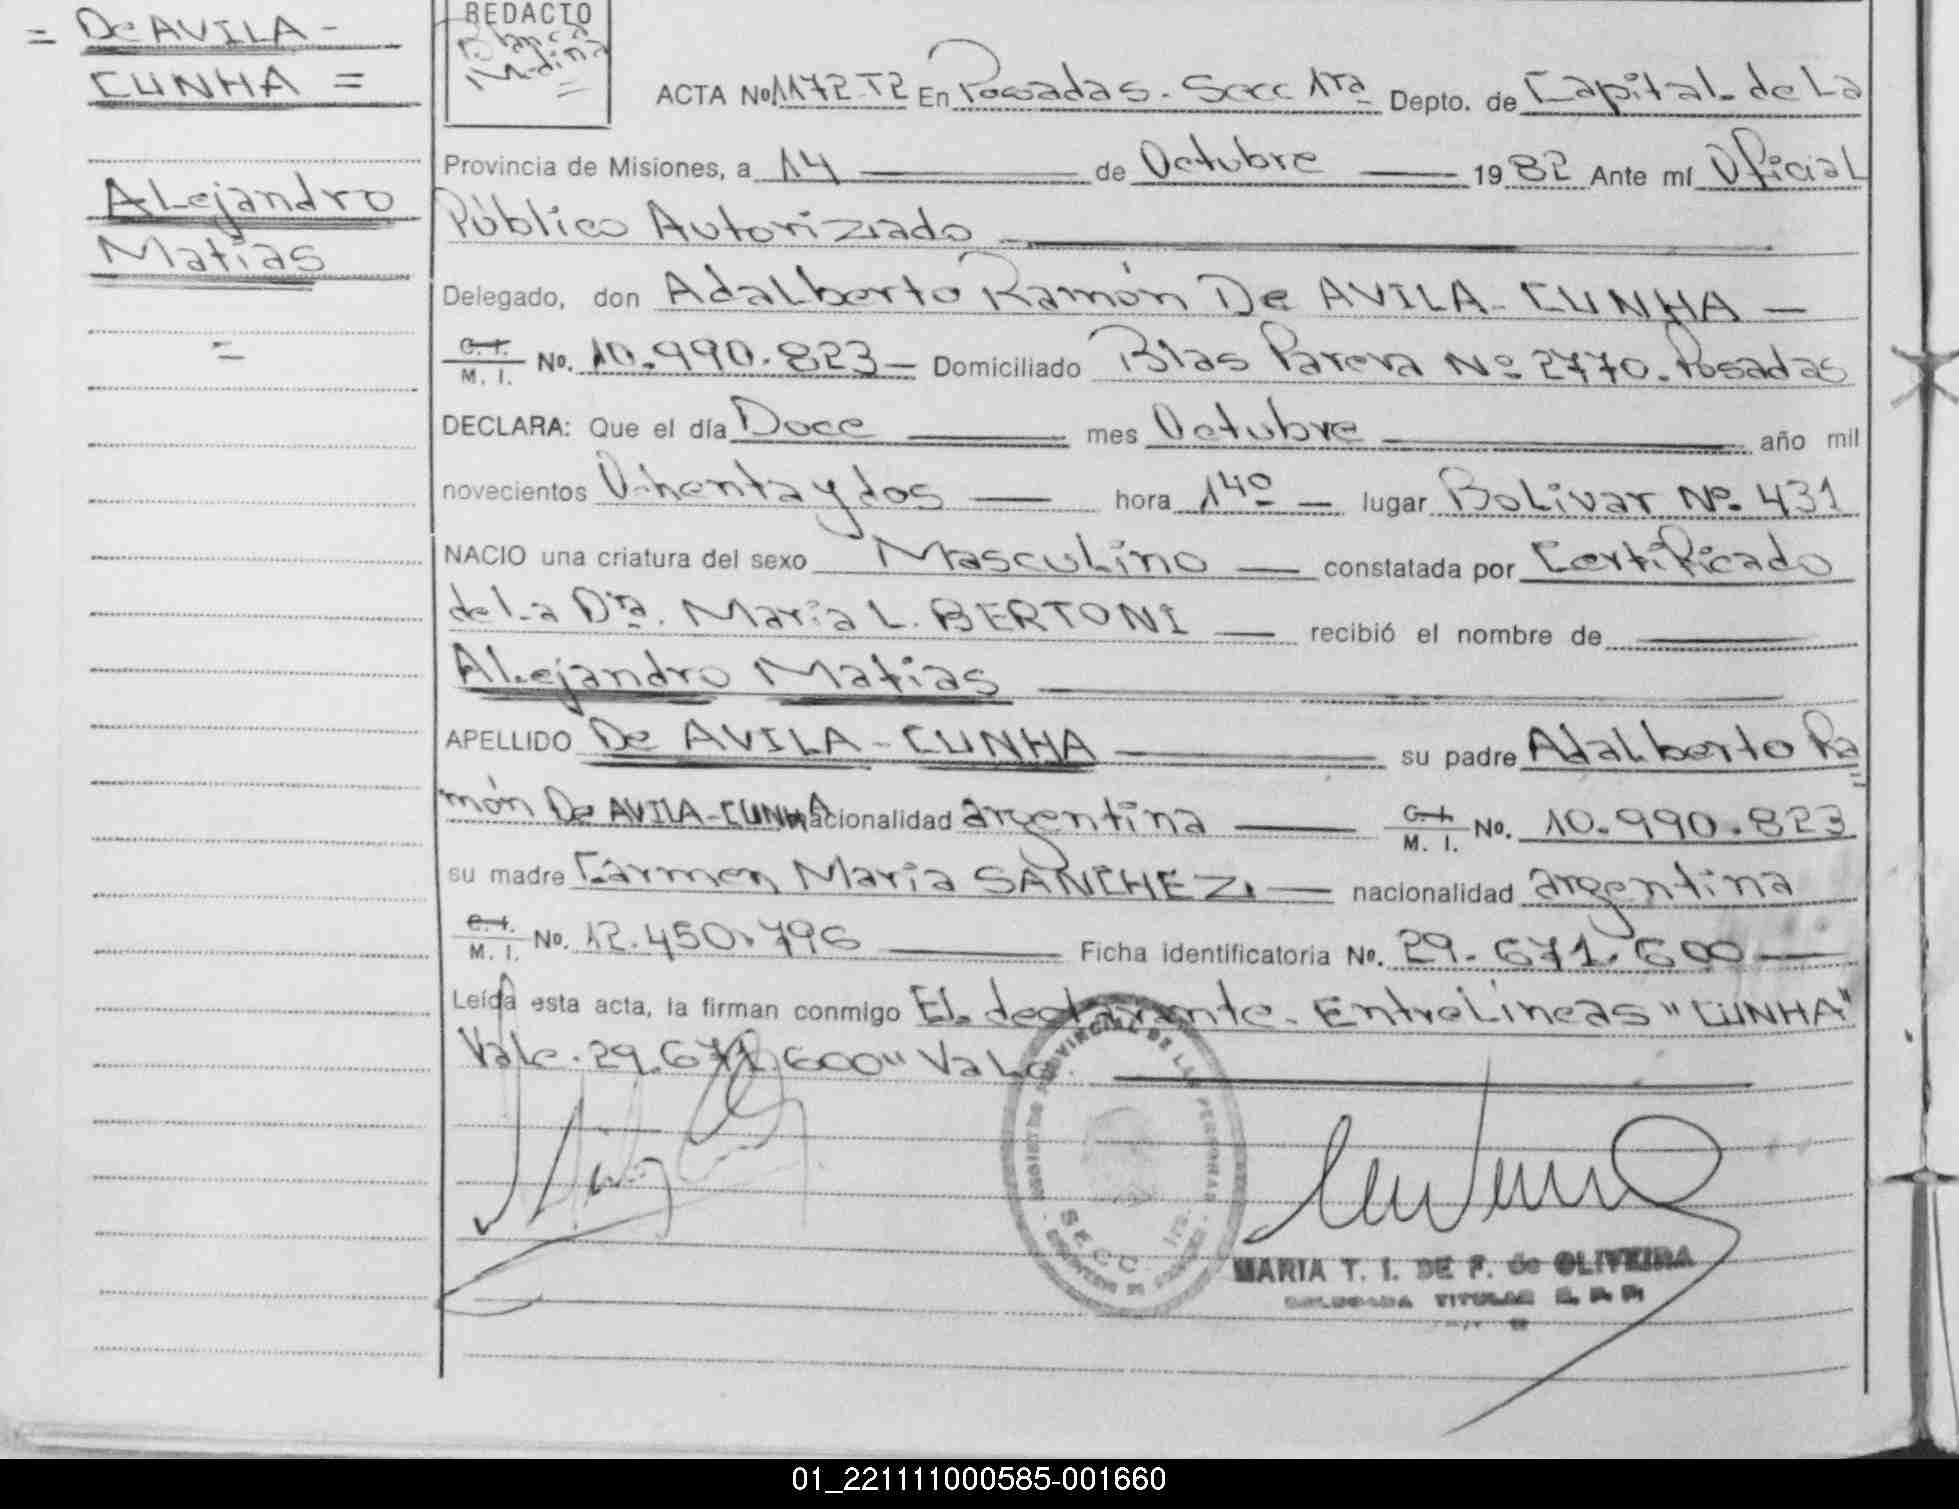 = De AVILA-
CUNHA =
Alejandro
Matías
=
REDACTO
Blanca
Medina
=
ACTA No 1172-T2 En Posadas. Secc 1ra Depto. de Capital. de La
Provincia de Misiones, a 14 de Octubre 1982 Ante mí Oficial
Público Autorizado
Delegado, don Adalberto Ramón De AVILA-CUNHA —
C. I.
M. I. No. 10.990.823 — Domiciliado Blas Parera Nº 2770. Posadas
DECLARA: Que el día Doce mes Octubre año mil
novecientos Ochenta y dos — hora 14º — lugar Bolivar Nº. 431
NACIO una criatura del sexo Masculino — constatada por Certificado
de La Dra. María L. BERTONI — recibió el nombre de
Alejandro Matías
APELLIDO De AVILA-CUNHA su padre Adalberto Ra
món De AVILA-CUNHA nacionalidad argentina — C. I.
M. I. No. 10.990.823
su madre Carmen María SANCHEZ — nacionalidad argentina
C. I.
M. I. No. 12.450.796 — Ficha identificatoria No. 29.671.600 —
Leída esta acta, la firman conmigo El declarante. EntreLíneas "CUNHA"
Vale. 29.671.600" Vale.
REGISTRO PROVINCIAL DE LAS PERSONAS
SECC. 1ra.
MARIA T. I. DE F. de OLIVEIRA
DELEGADA TITULAR R. P. P.
01_221111000585-001660